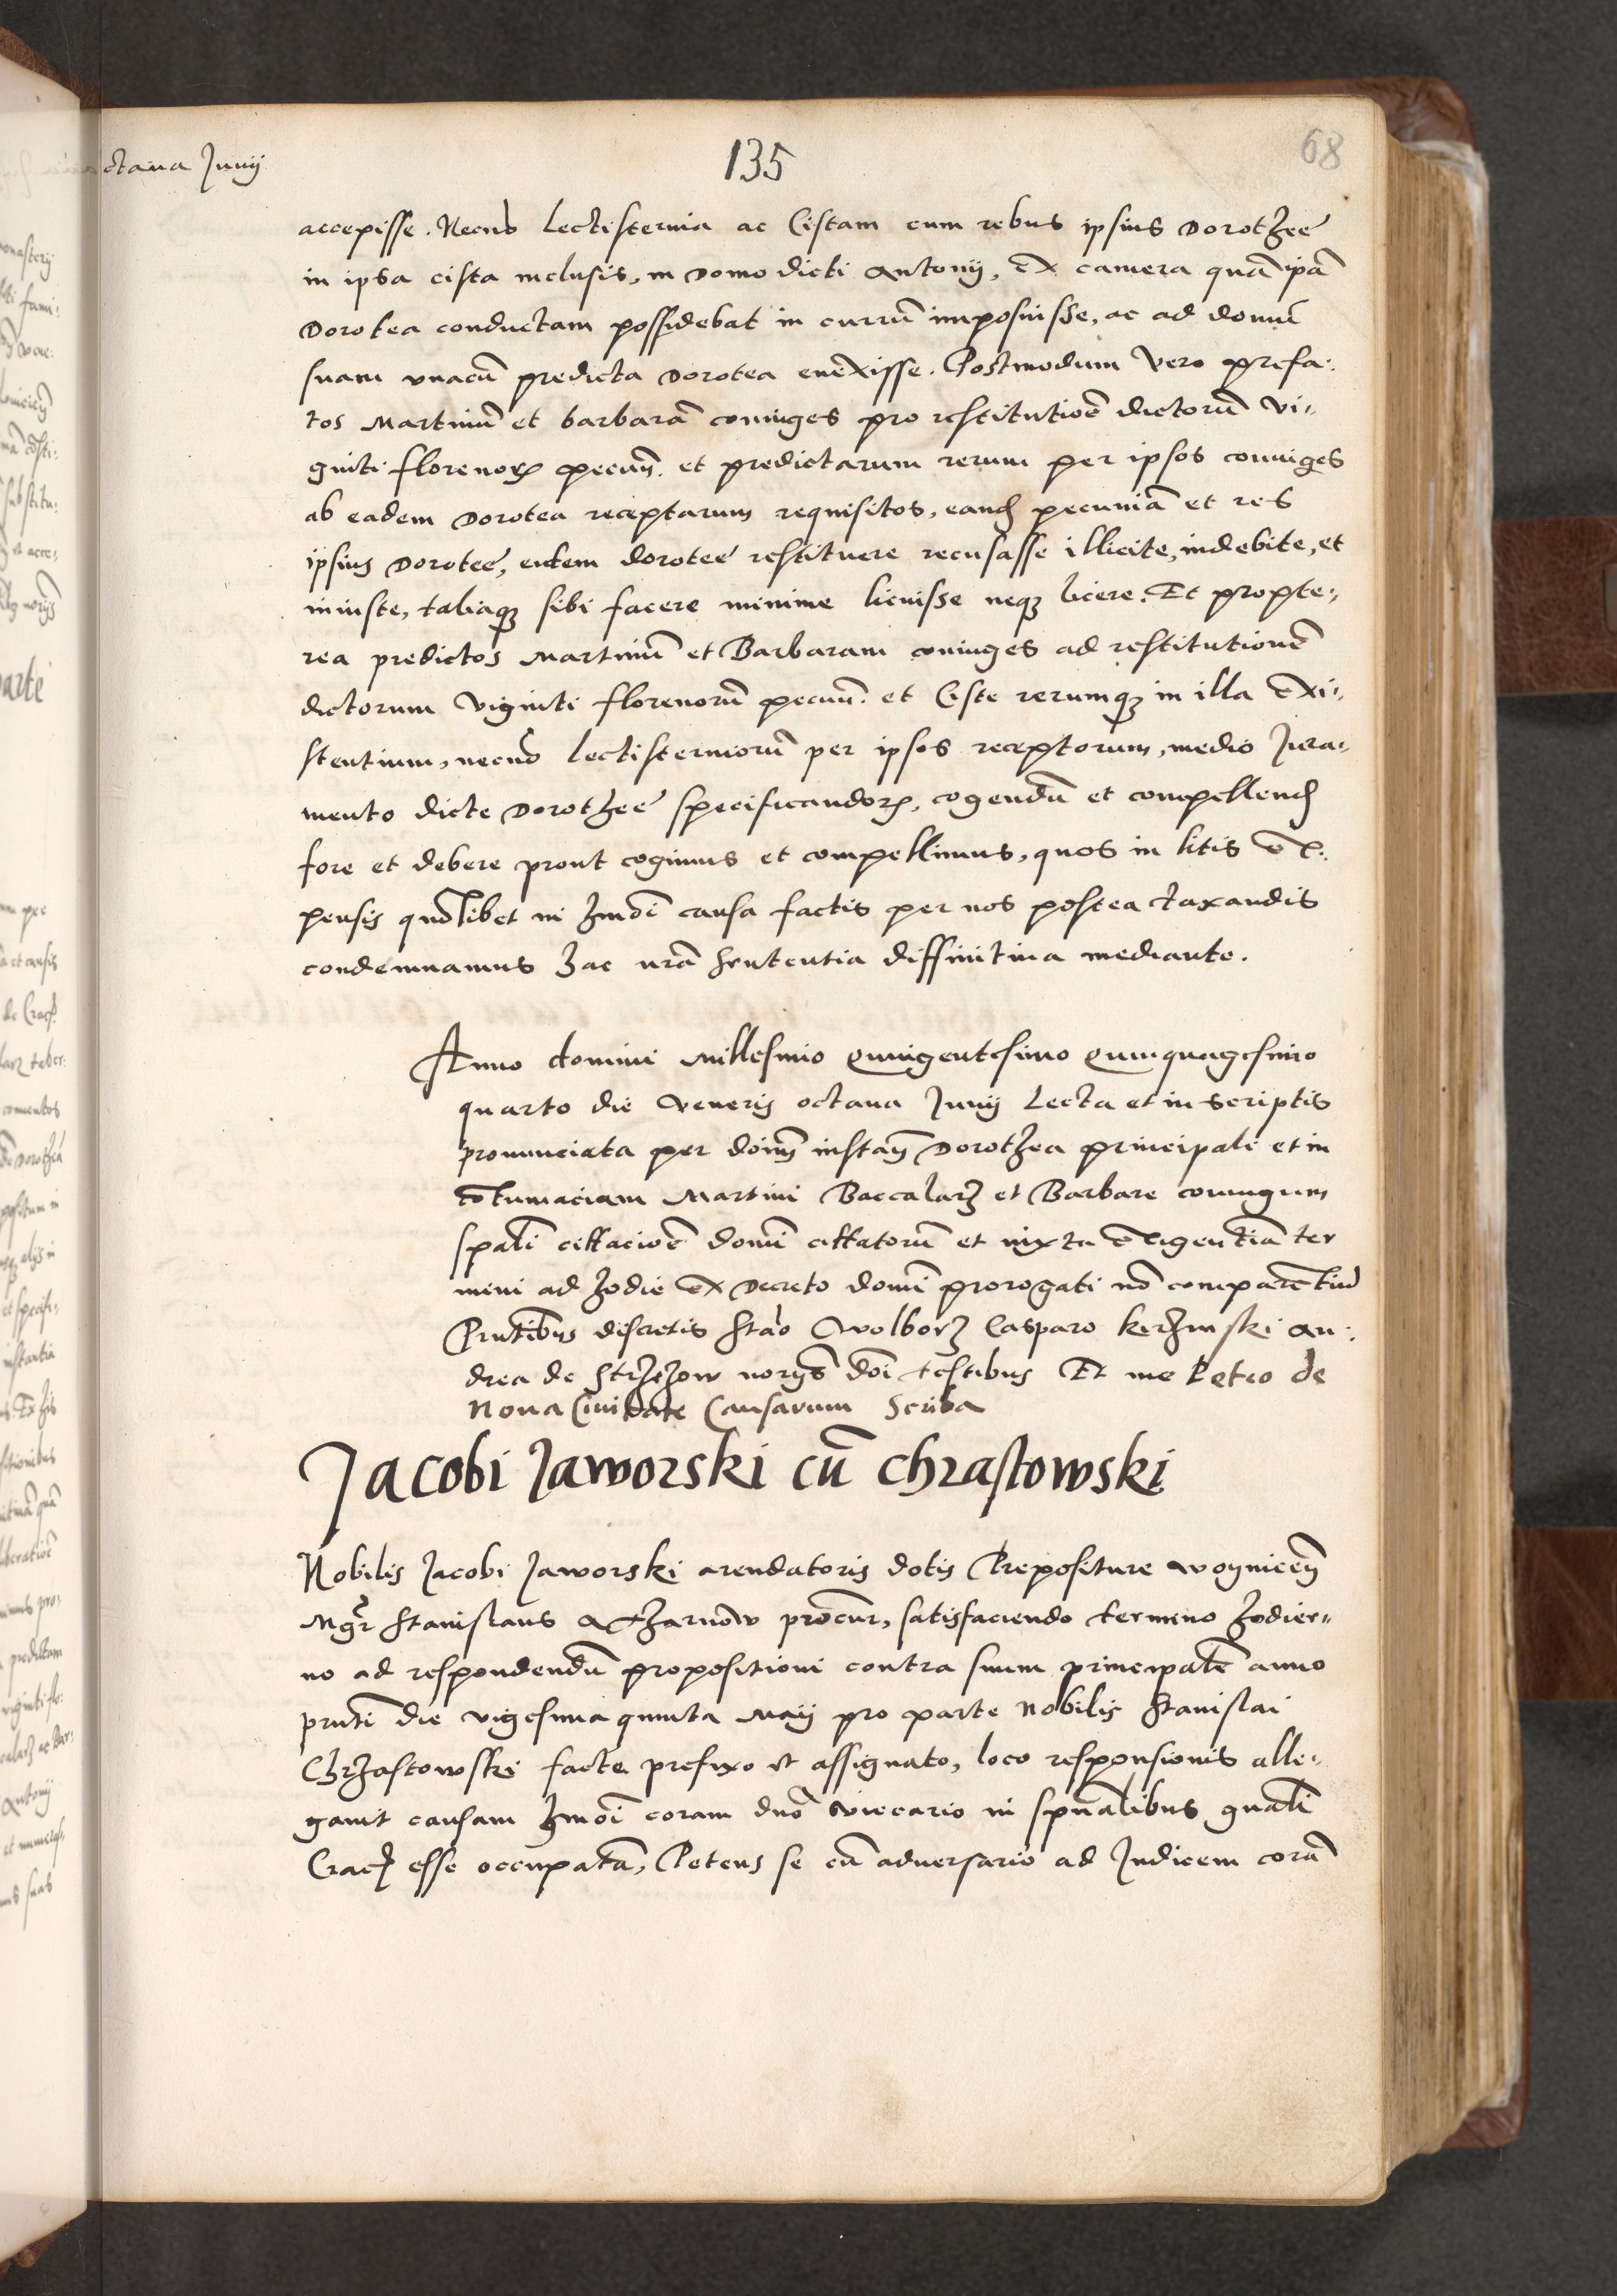 135
68
ctaua Junij
accepisse. Necnō Lectisternia ac Cistam cum rebus ipsius Dorothee
in ipsa cista inclusis, in Domo dicti Antonij, ex camera quā ipā
Dorotea conductam possidebat in currū imposuisse, ac ad domū
suam vnacū predicta Dorotea euexisse. Postmodum Vero prefa:
tos Martinū et barbarā coniuges pro restitutioē dictorū Vi:
ginti florenorꝝ pecuñ. et predictarum rerum per ipsos coniuges
ab eadem Dorotea receptarum requisitos, eand pecuniā et res
ipsius Dorotee, eidem dorotee restituere recusasse illicite, indebite, et
iniuste, taliaqꝫ sibi facere minime licuisse neqꝫ licere. Et propte:
rea predictos Martinū et Barbaram coniuges ad restitutionē
dictorum Viginti florenorū pecuñ. et Ciste rerumqꝫ in illa exi:
stentium, necnō lectisterniorū per ipsos receptorum, medio Jura:
mento dicte Dorothee specificandorꝝ, cogendū et compellend
fore et debere prout cogimus et compellimus, quos in litis ex:
pensis quōlibet in hmōi causa factis per nos postea taxandis
condemnamus hac nrā sententia diffinitiua mediante.
Anno domini Millesimo Quingentesimo Quinquagesimo
quarto die Veneris octaua Junij Lecta et in scriptis
pronunciata per dominū instañ Dorothea principali et in
cōtumaciam Martini Baccalarz et Barbare coniugum
spāli cittacioē domī cittatorū et iuxta exigentiā ter
mini ad hodie ex Decreto domī prorogati nō comparētiū
Pñtibus discretis Stāo Wolborz Casparo kerzinski An:
drea de Strzezow norijs dōi testibus Et me Petro de
Noua Ciuitate Causarum Scriba
Jacobi Jaworski cū Chrastowski
Nobilis Jacobi Jaworski arendatoris dotis Prepositure Woyniceñ
Mgr̄ Stanislaus a Tharnow procur, satisfaciendo termino hodier:
no ad respondendū propositioni contra suum principalē anno
pñti die vigesima quinta Maij pro parte Nobilis Stanislai
Chrzastowski facte prefixo et assignato, loco responsionis alle:
gauit causam hmōi coram dno Vicario in spualibus gnāli
Crac esse occupatā, Petens se cū aduersario ad Judicem corā